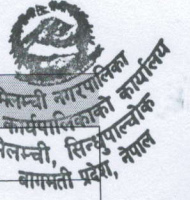 मेलम्ची नगरपालिका
कार्यपालिकाको कार्यालय
मेलम्ची, सिन्धुपाल्चोक
बागमती प्रदेश, नेपाल